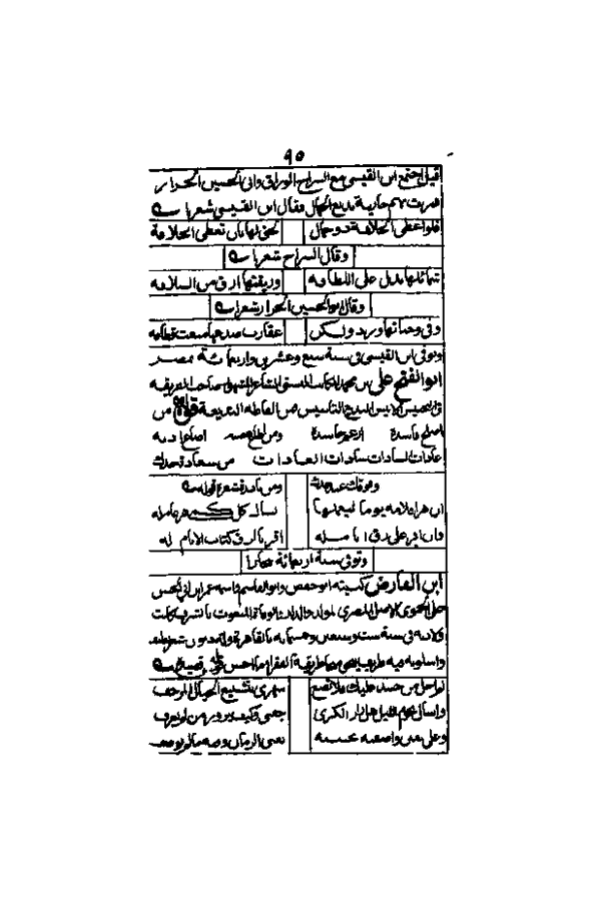 ٩٥
قيل اجتمع ابن القيسى مع السراج الوراق وابى الحسين الجزار
فمرت بهم جارية بديعة الجمال فقال ابن القيسى شعرا
وقال السراج شعرا
شمائلها تدل على اللطافه وريقتها ارق من السلافه
وقال ابو الحسين الجزار شعرا
وفى وجناتها ورد ولكن عقارب صدغها منعت قطافه
وتوفى ابن القيسى فى سنة سبع وعشرين واربعمائة بمصر
ابو الفتح على بن محمد الكاتب البستى الشاعر المشهور صاحب الطريقة
فى التجنيس الانيس البديع التاسيس من الفاظه البديعة قوله من
اصلح فاسده ارغم حاسده ومن اطاع غضبه اضاع ادبه
عادات السادات سادات العادات من سعادة جدك
وقوفك عند حدك ومن نادرة شعره قوله
ان هز اقلامه يوما ليعملها انساك كل كمى هز عامله
وان اقر على رق انامله اقر بالرق كتاب الانام له
وتوفى سنة اربعمائة
ابن الفارض كنيته ابو حفص وابو القاسم واسمه عمر ابن ابى الحسن
الحموى الاصل المصرى المولد والدار والوفاة المنعوت بالشرف كانت
ولادته فى سنة ست وسبعين وخمسمائة بالقاهرة وله ديوان شعر لطيف
واسلوبه فيه طريقة الفقراء
لم اخل من حسد عليك فلا تضع سهرى بتشنيع الخيال المرجف
واسأل نجوم الليل هل زار الكرى جفنى وكيف يزور من لم يعرف
وعلى تفنن واصفيه بحسنه يفنى الزمان وفيه ما لم يوصف